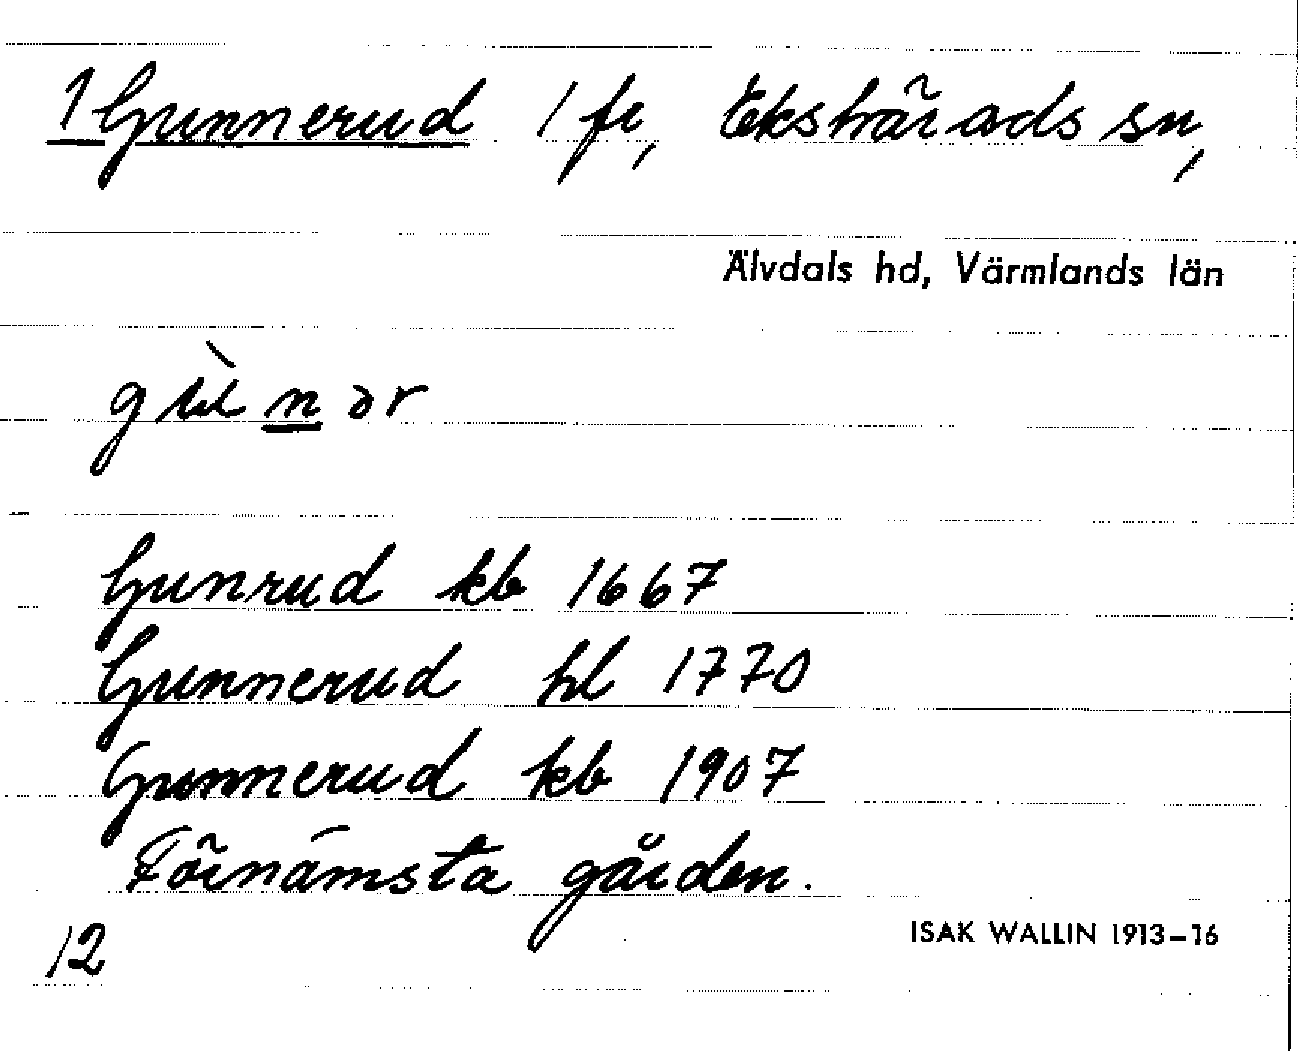 1 Gunnerud 1 fr, Ekshärads sn,
Älvdals hd, Värmlands län
Gunrud kb 1667
Gunnerud hl 1770
Gunnerud kb 1907
Förnämsta gården.
12
ISAK WALLIN 1913-16